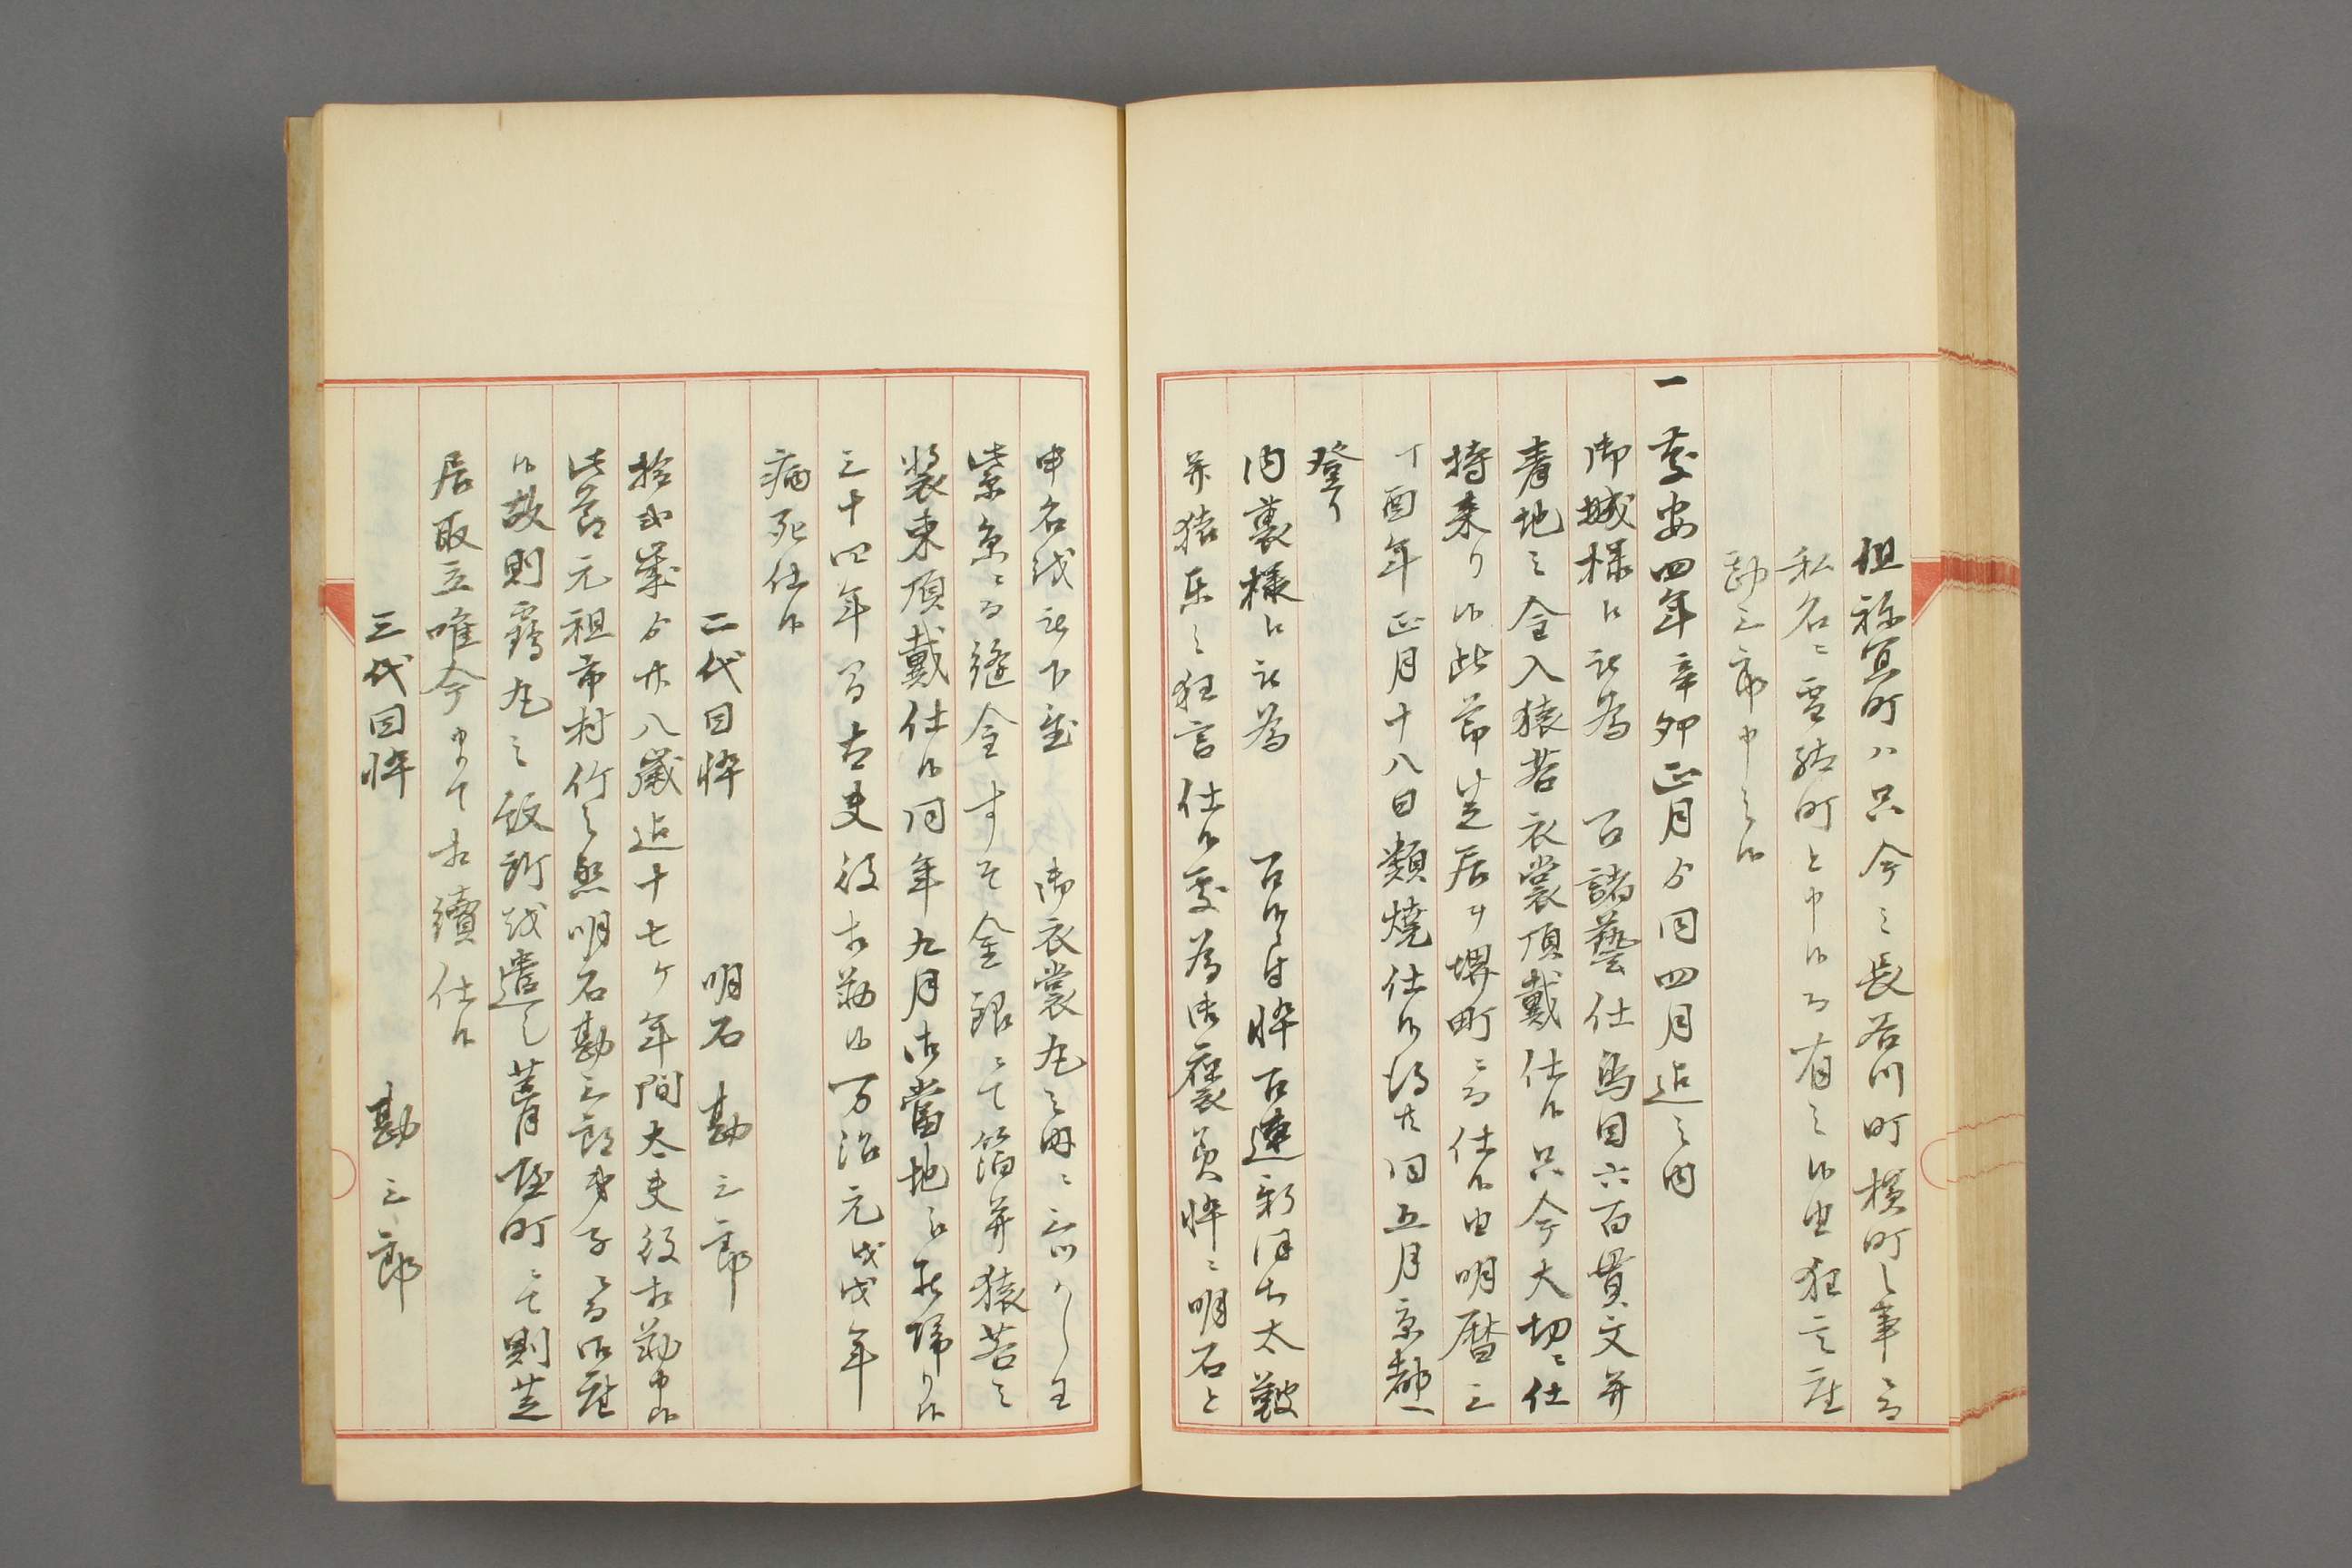 但祢宜町ハ只今之長谷川町横町之事ニ而
私名ニ雪踏町と申候而有之候由狂言座
勘三郎申之候
一慶安四年辛卯正月ゟ同四月迄之内
御城様江被為　召諸藝仕鳥目六百貫文并
青地之金入猿若衣裳頂戴仕候只今大切ニ仕
持来り候此節芝居ハ堺町ニ而仕候由明暦三
丁酉年正月十八日類焼仕候得共同五月京都へ
登り
内裏様江被為　召候付忰召連新発太鼓
并猿楽之狂言仕候處為御褒美忰ニ明石と
申名被下置　御衣裳丸之内ニ三ツかしわ
紫糸ニ而縫金すそ金銀ニて箔并猿若之
装束頂戴仕候同年九月御當地江罷帰り候
三十四年間太夫役相勤候万治元戊戌年
病死仕候
二代目忰　明石勘三郎
拾弐歳ゟ廿八歳迄十七ヶ年間太夫役相勤申候
此節元祖市村竹之丞明石勘三郎弟子ニ而御座
候故則鶴丸之紋所越遣之葺屋町ニ而則芝
居取立唯今まて相續仕候
三代目忰　勘三郎